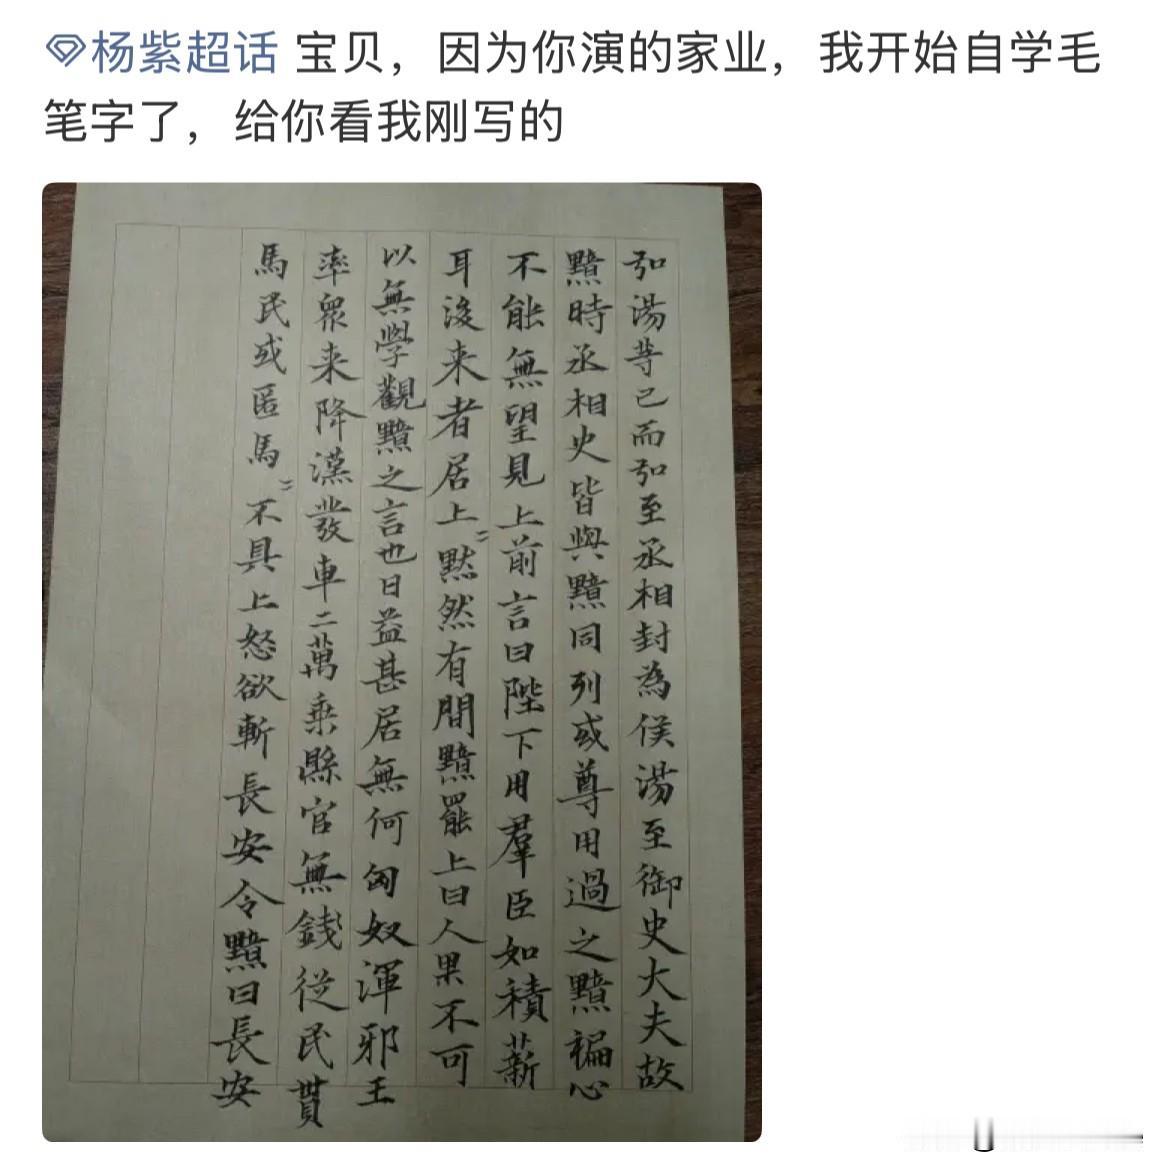 杨紫超话 宝贝，因为你演的家业，我开始自学毛
笔字了，给你看我刚写的
弘湯等已而弘至丞相封為侯湯至御史大夫故
黯時丞相史皆與黯同列或尊用過之黯褊心
不能無望見上前言曰陛下用羣臣如積薪
耳後来者居上〻黙然有間黯罷上曰人果不可
以無學觀黯之言也日益甚居無何匈奴渾邪王
率衆来降漢發車二萬乗縣官無錢從民貰
馬民或匿馬〻不具上怒欲斬長安令黯曰長安